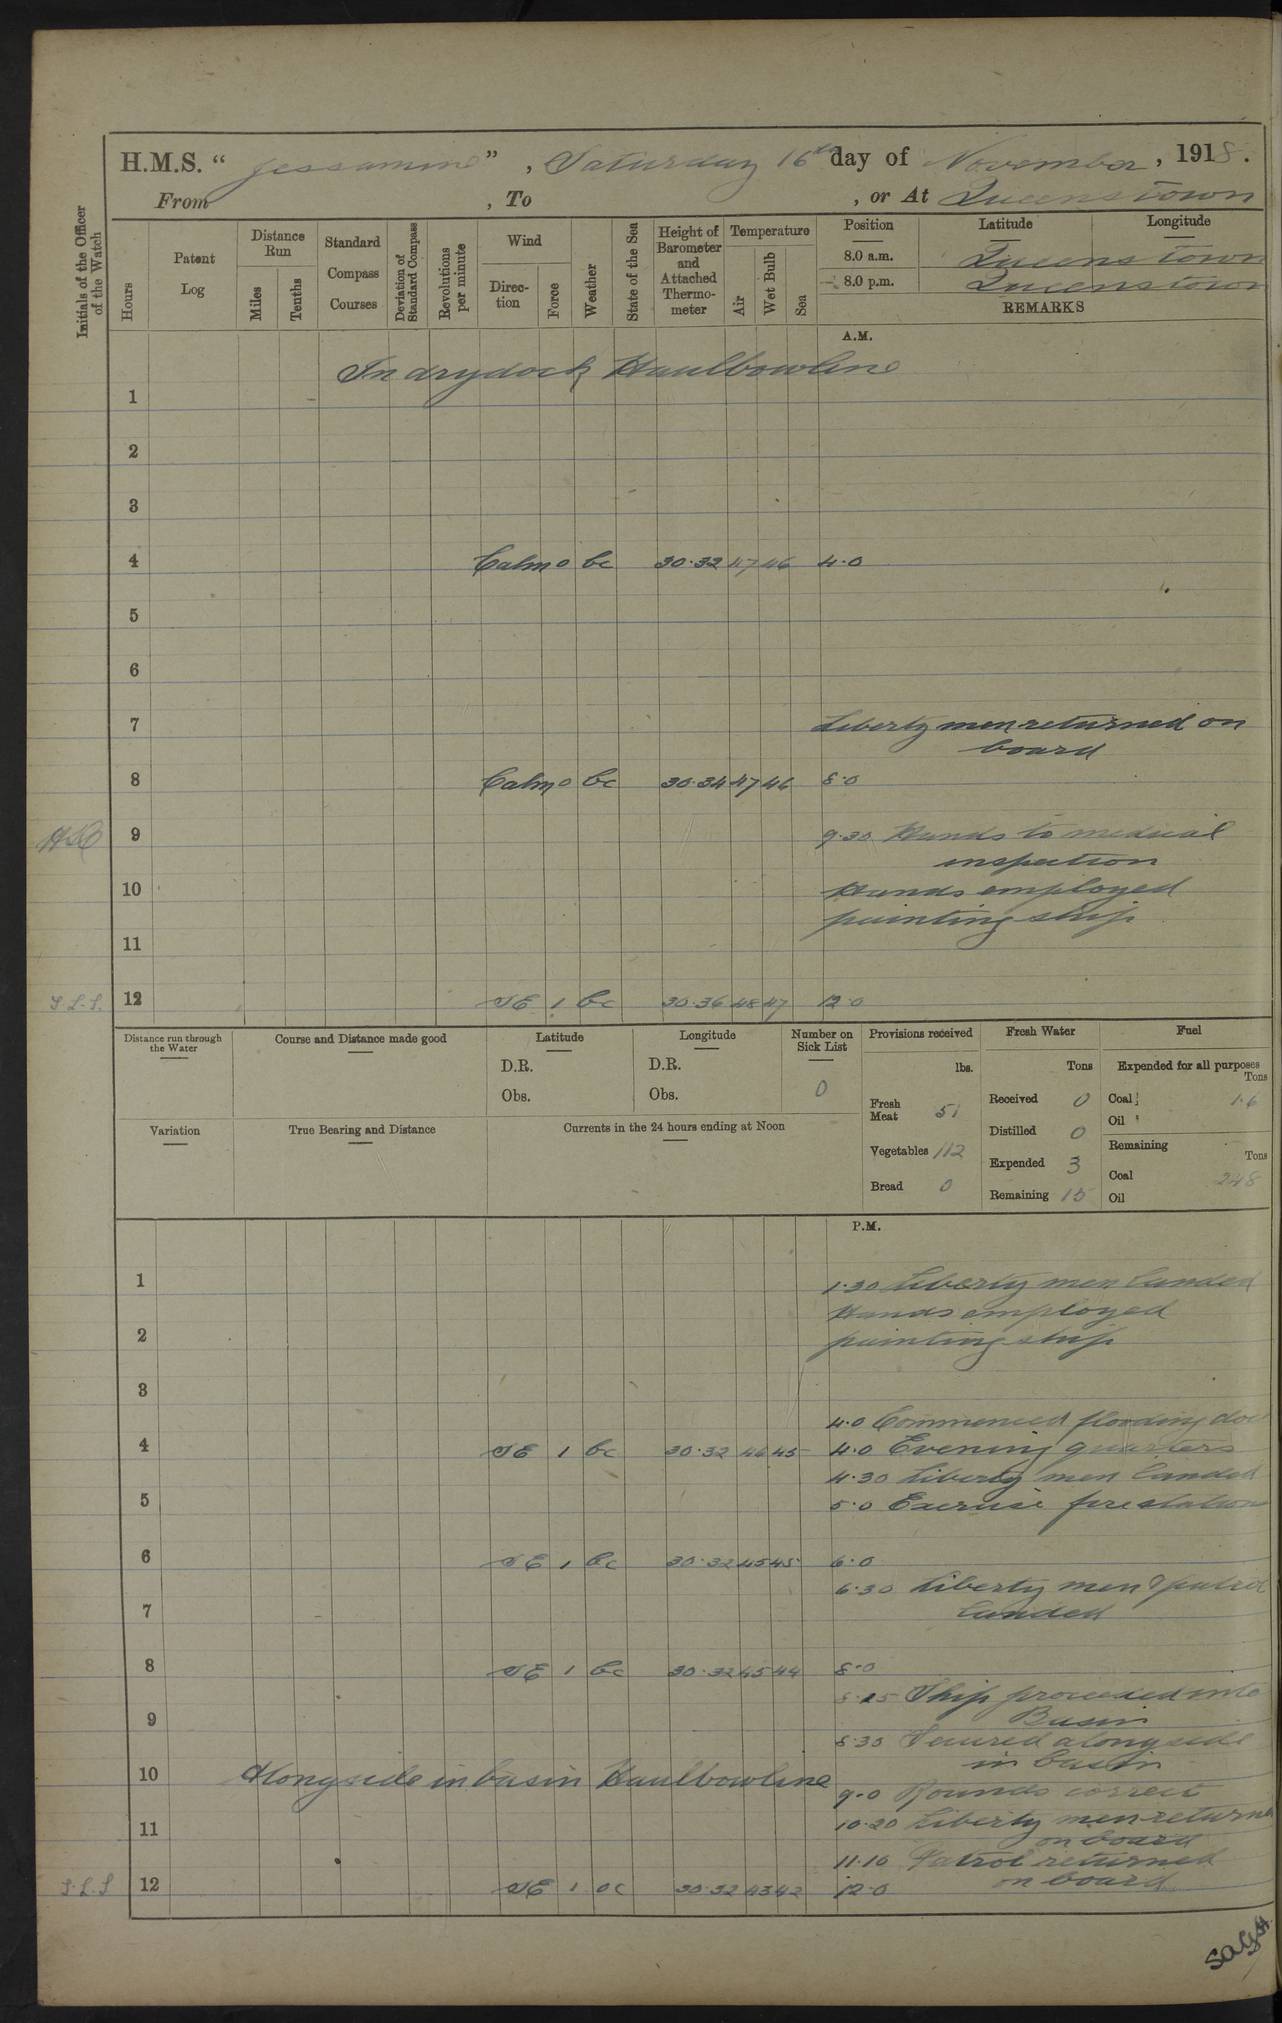 H.M.S. "Jessamine", Saturday 16th day of November, 1918.
From , To , or At Queenstown
Initials of the Officer of the Watch
Hours
Patent Log
Distance Run
Miles
Tenths
Standard Compass Courses
Deviation of Standard Compass
Revolutions per minute
Wind
Direction
Force
Weather
State of the Sea
Height of Barometer and Attached Thermometer
Temperature
Air
Wet Bulb
Sea
Position Latitude Longitude
8.0 a.m. Queenstown
8.0 p.m. Queenstown
REMARKS
A.M.
In drydock Haulbowline
1
2
3
4 Calm 0 bc 30.32 47 46 4.0
5
6
7 Liberty men returned on
board
8 Calm 0 bc 30.34 47 46 8.0
9 9.30 Hands to medical
inspection
10 Hands employed
painting ship
11
S.L.S. 12 SE 1 bc 30.36 48 47 12.0
Distance run through the Water
Course and Distance made good
Latitude
D.R.
Obs.
Longitude
D.R.
Obs.
Number on Sick List
0
Provisions received
lbs.
Fresh Meat 51
Vegetables 112
Bread 0
Fresh Water
Tons
Received 0
Distilled 0
Expended 3
Remaining 15
Fuel
Expended for all purposes
Tons
Coal 1.6
Oil
Remaining
Tons
Coal 248
Oil
Variation
True Bearing and Distance
Currents in the 24 hours ending at Noon
P.M.
1 1.30 Liberty men landed
Hands employed
2 painting ship
3
4.0 Commenced flooding
4 SE 1 bc 30.32 46 45 4.0 Evening quarters
4.30 Liberty men landed
5 5.0 Exercise fire stations
6 SE 1 bc 30.32 45 45 6.0
6.30 Liberty men & patrol
7 landed
8 SE 1 bc 30.32 45 44 8.0
8.15 Ship proceeded into
9 Basin
8.30 Secured alongside
in basin
10 Alongside in basin Haulbowline
9.0 Rounds correct
11 10.20 Liberty men
on board
11.10 Patrol returned
on board
S.L.S 12 SE 1 oc 30.32 43 42 12.0